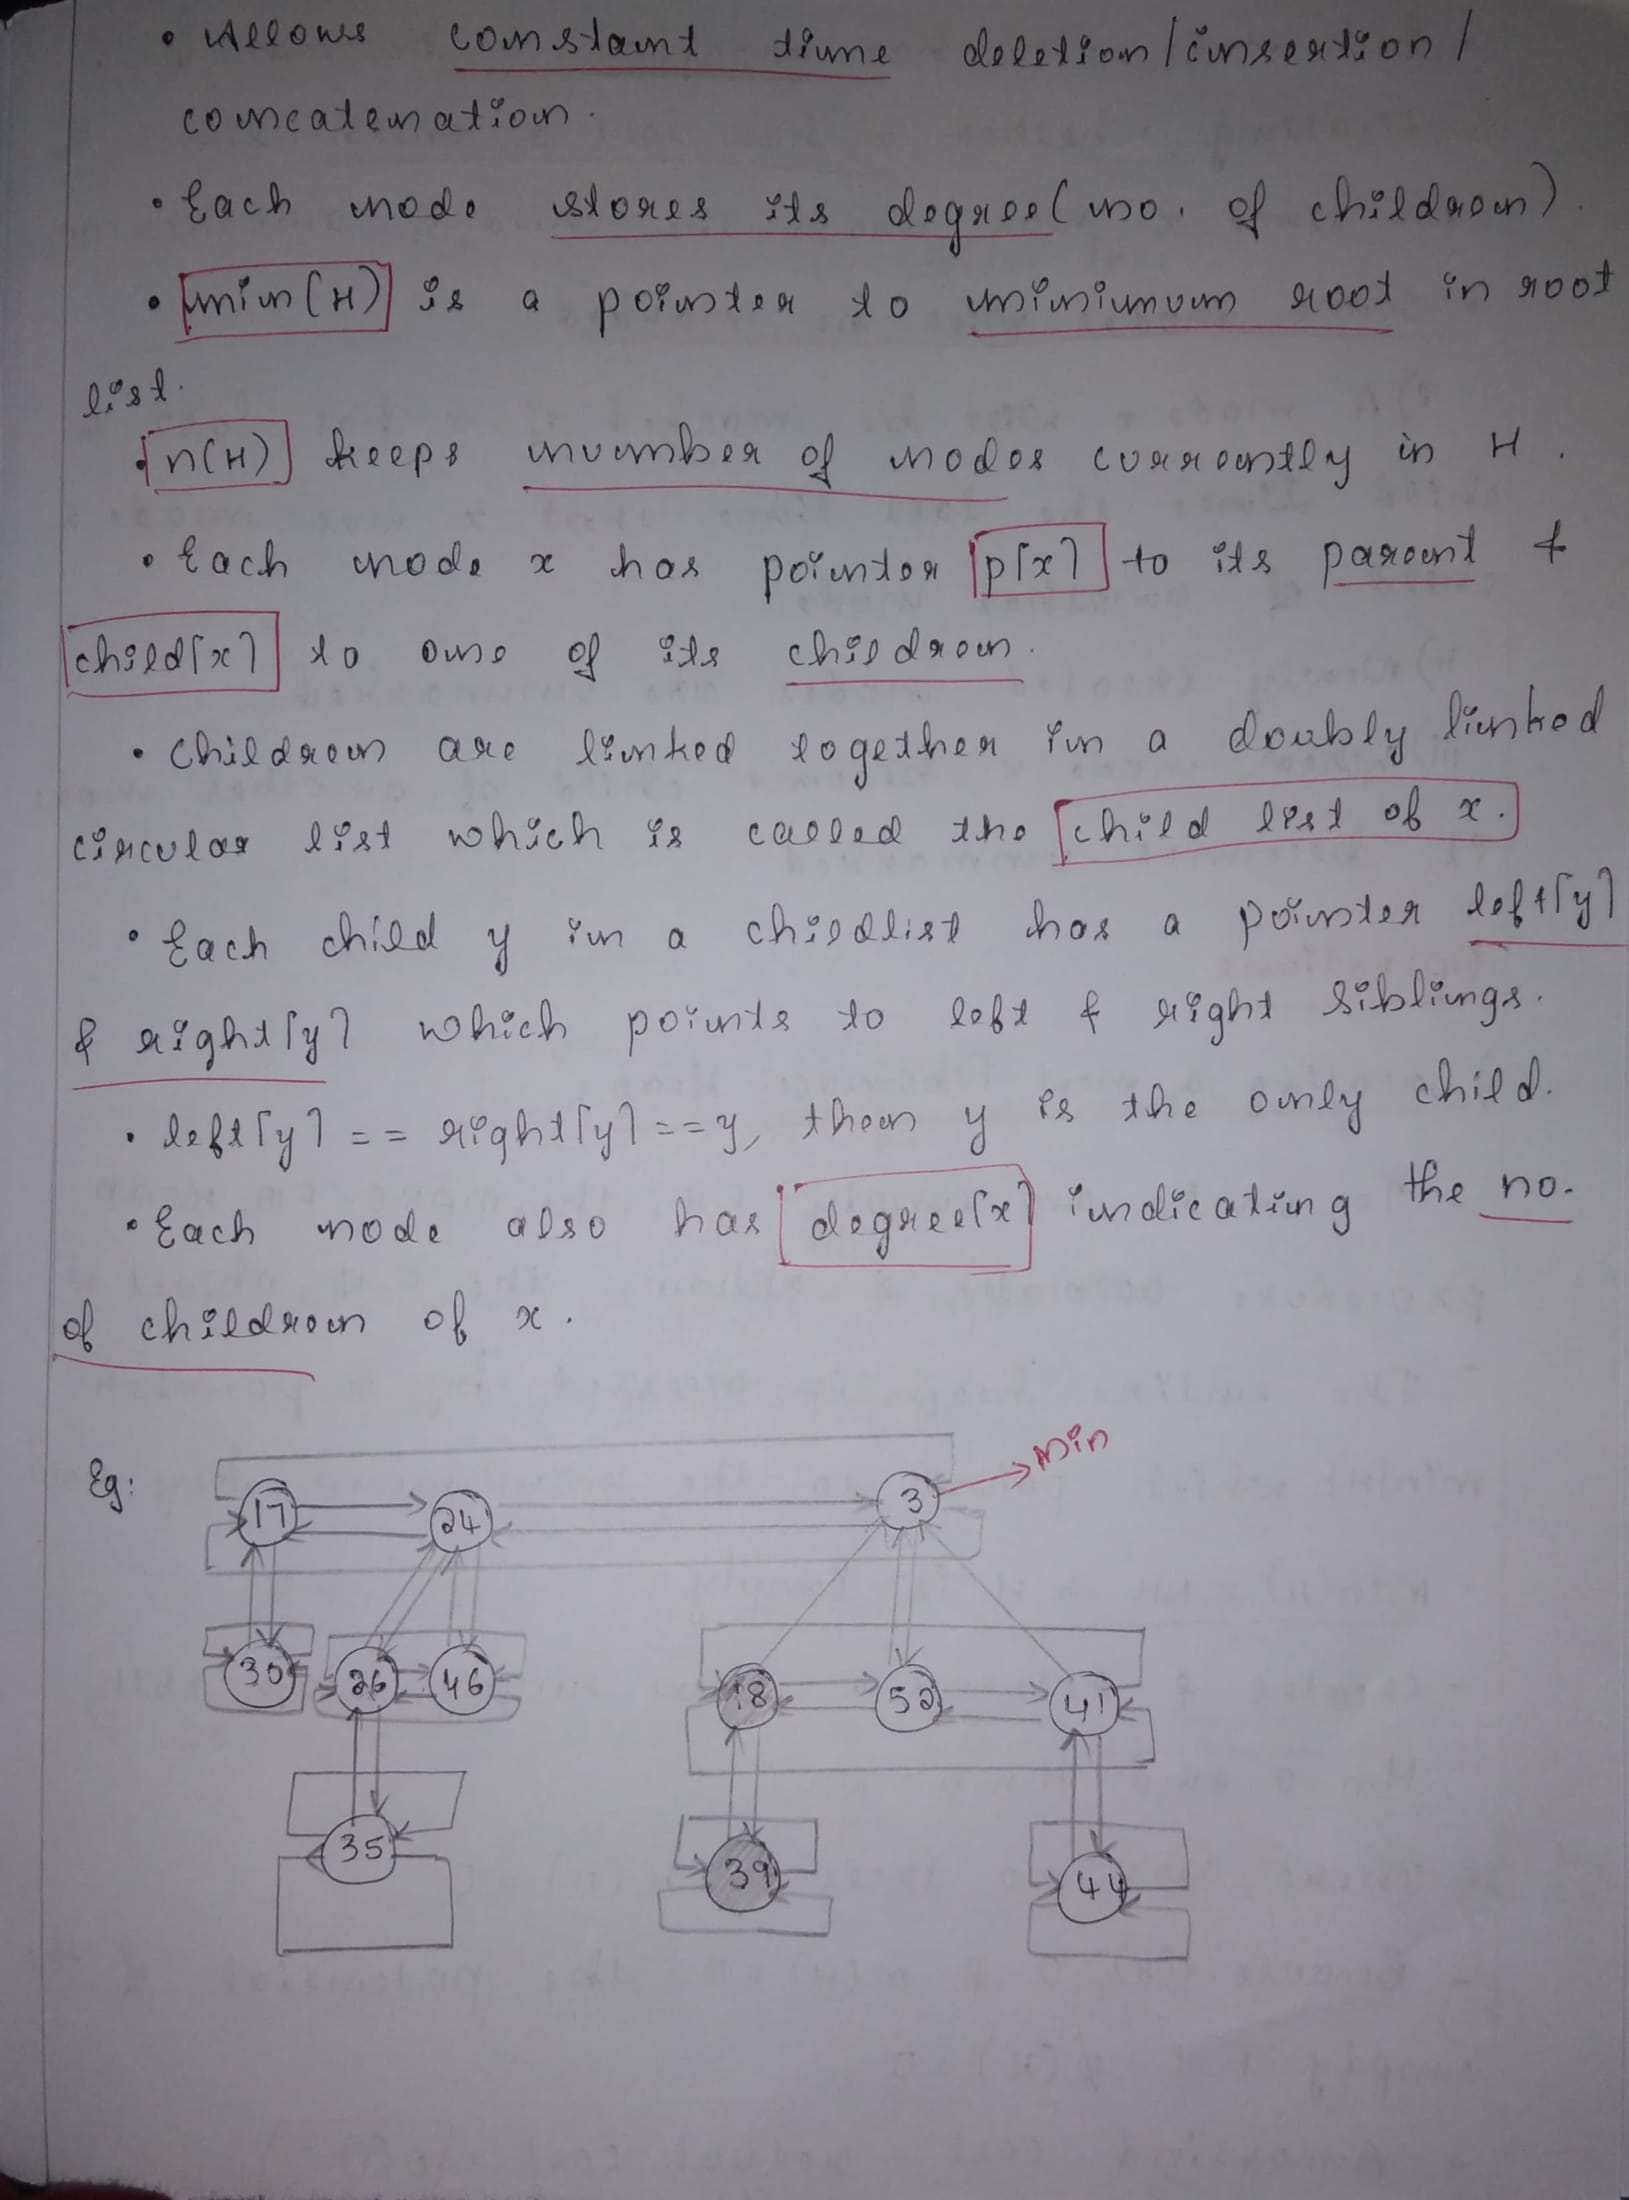 • Allows constant time deletion/insertion/
concatenation.
• Each node stores its degree(no. of children).
• min(H) is a pointer to minimum root in root
list.
• n(H) keeps number of nodes currently in H.
• Each node x has pointer p[x] to its parent &
child[x] to one of its children.
• Children are linked together in a doubly linked
circular list which is called the child list of x.
• Each child y in a childlist has a pointer left[y]
& right[y] which points to left & right siblings.
• left[y] == right[y] == y, then y is the only child.
• Each node also has degree[x] indicating the no.
of children of x.
Eg:
Min
17 24 3
30 26 46 18 52 41
35 39 44